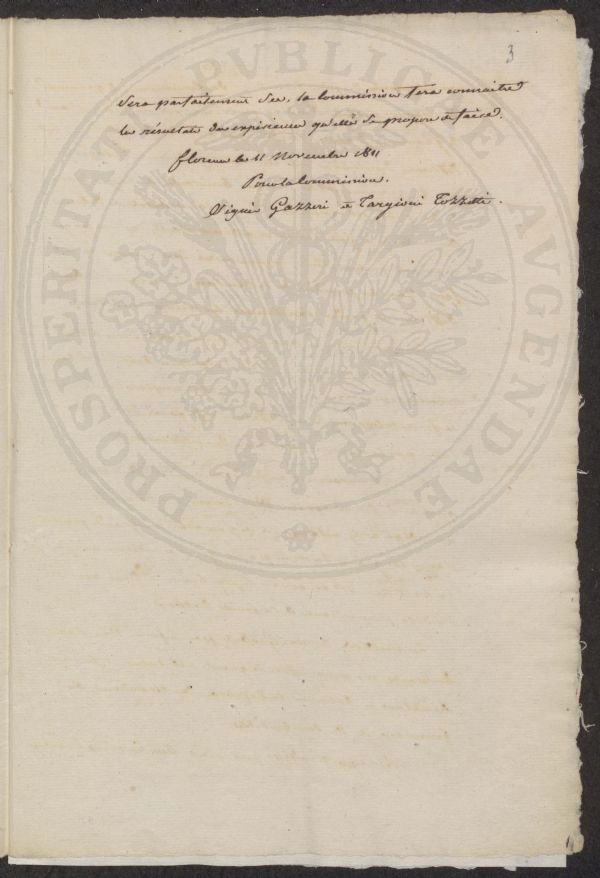 3
Sera parfaitement sec, la Commission fera connaitre
les résultats des expériences qu'elle se propose de faire.
Florence le 11 Novembre 1811
Pour la Commission.
Signé Gazzeri et Targioni Tozzetti.
PROSPERITATI PVBLICAE AVGENDAE